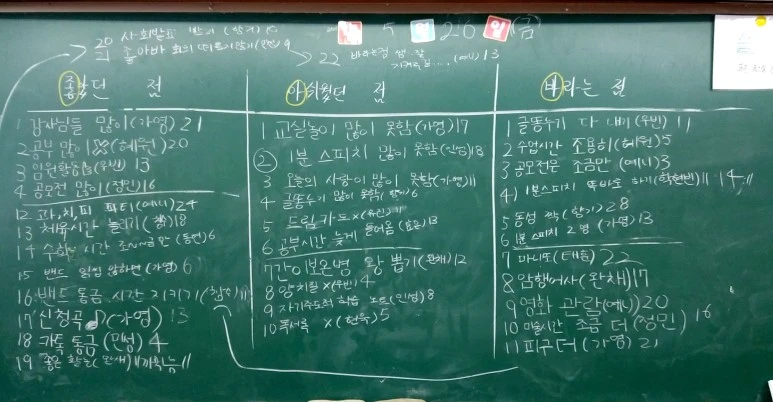 5 월 26 일 (금)
20 사회발표 받기 (향기) 10
21 졸아바 회의
22 바라는점
13
좋았던 점
1 감자님들 많이 (가영) 21
2 공부 많이 (혜원) 20
3 임원활동 (우빈) 13
4 공모전 많이 (정민) 16
12 과,치,피 파티 (예니) 24
13 체육시간 늘리기
14 수학 시간 조금만 (동연) 6
15 밴드 일일 안하면 (가영) 6
16 밴드 통금 시간 지키기
17 신청곡 (가영) 13
18 카톡 통금 (민성) 4
19 좋은
아쉬웠던 점
1 교실놀이 많이 못함 (가영) 17
2 1분 스피치 많이 못함 13
3 오늘의 사랑이 많이 못함 (가영) 11
4 글똥누기 많이 못함 (향기) 6
5 드림카드 x (우빈) 11
6 공부시간 늦게 들어옴 13
7 간이보온병 왕 뽑기 (완채) 12
8 양치질 x (우빈) 4
9 자기주도적 학습 노트 (민성) 8
10 독서록 x (현욱) 5
바라는 점
1 글똥누기 다 내기 (우빈) 11
2 수업시간 조용히 (혜원) 5
3 공모전은 조금만 (예니) 3
4 1분스피치 똑바로 하기 14
5 동성 짝 (향기) 28
6 1분 스피치 2명 (가영) 13
7 마니또 (태음) 22
8 암행어사 (완채) 17
9 영화 관람 (예니) 20
10 미술시간 조금 더 (정민) 16
11 피구 더 (가영) 21